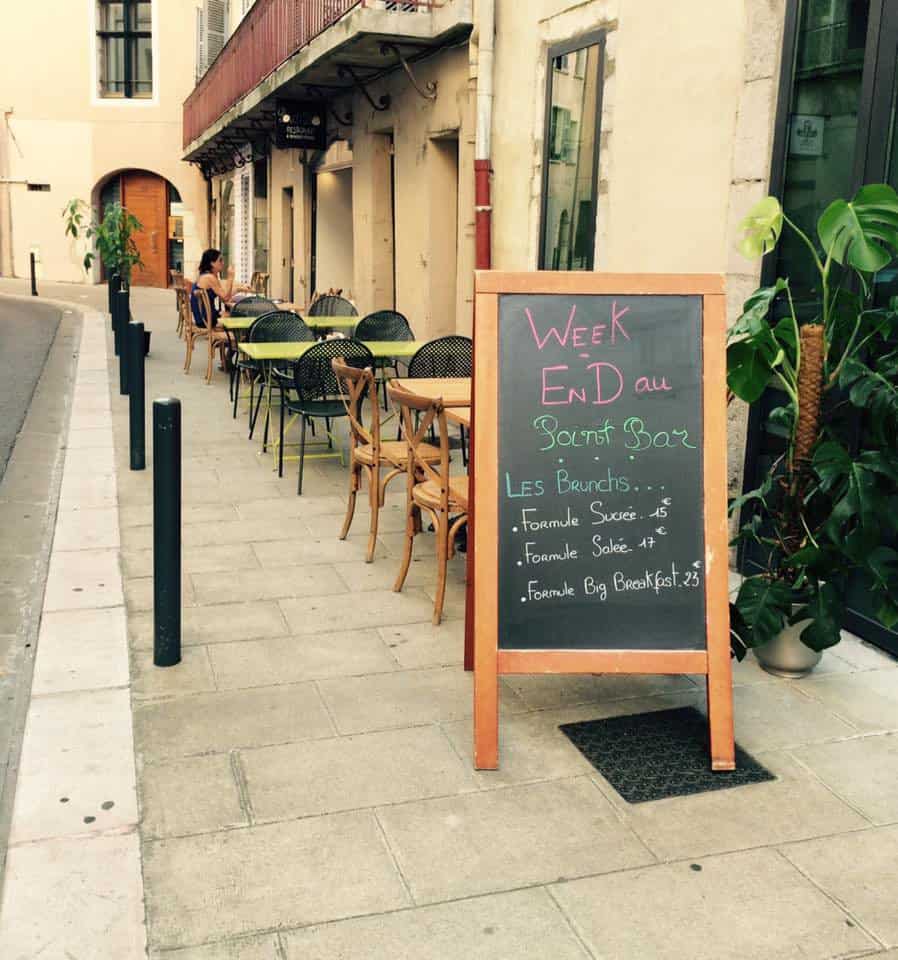 Week
End au
Point Bar
Les Brunchs...
. Formule Sucrée. 15€
. Formule Salée 17€
. Formule Big Breakfast. 23€